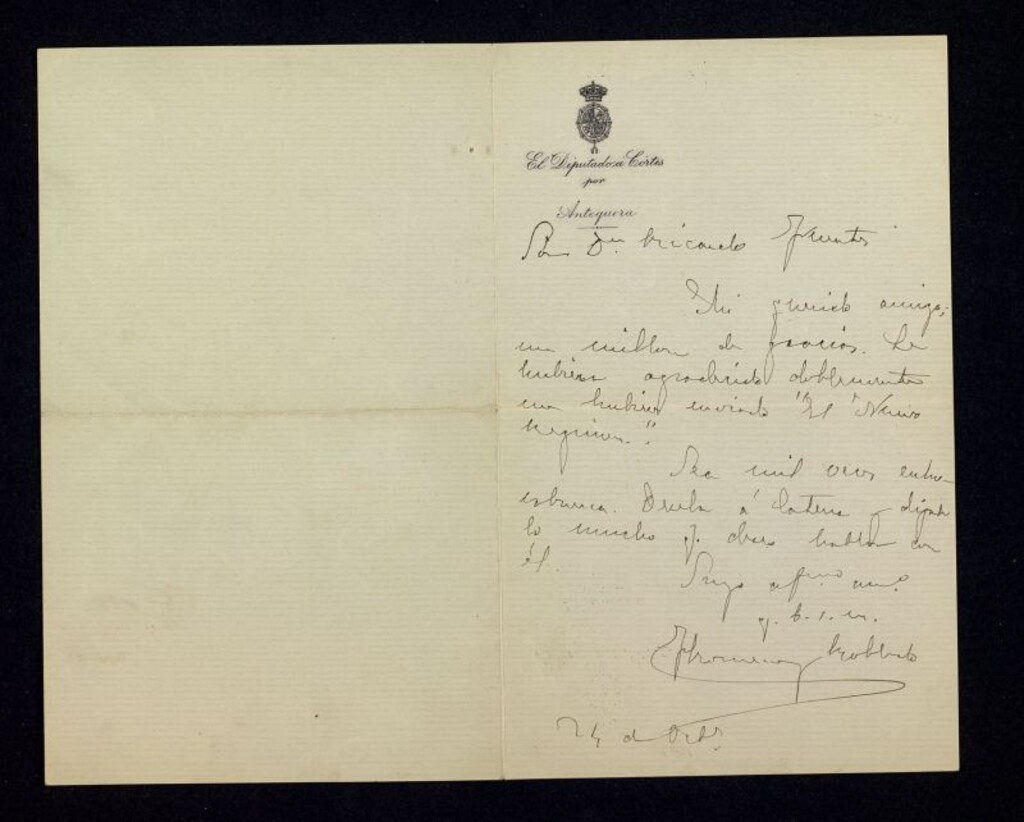 El Diputado a Córtes
por
Antequera
Sor Dn. Ricardo Fuentes
Mi querido amigo;
un millon de gracias. Le
hubiera agradecido doblemente
me hubiera enviado "El Nuevo
Regimen."
Sea mil veces enhorabuena
á y digale
lo mucho q. deseo hablar con
él.
Suyo afmo. amo.
q. b. s. m.
F Romero y Robledo
24 de Octe.